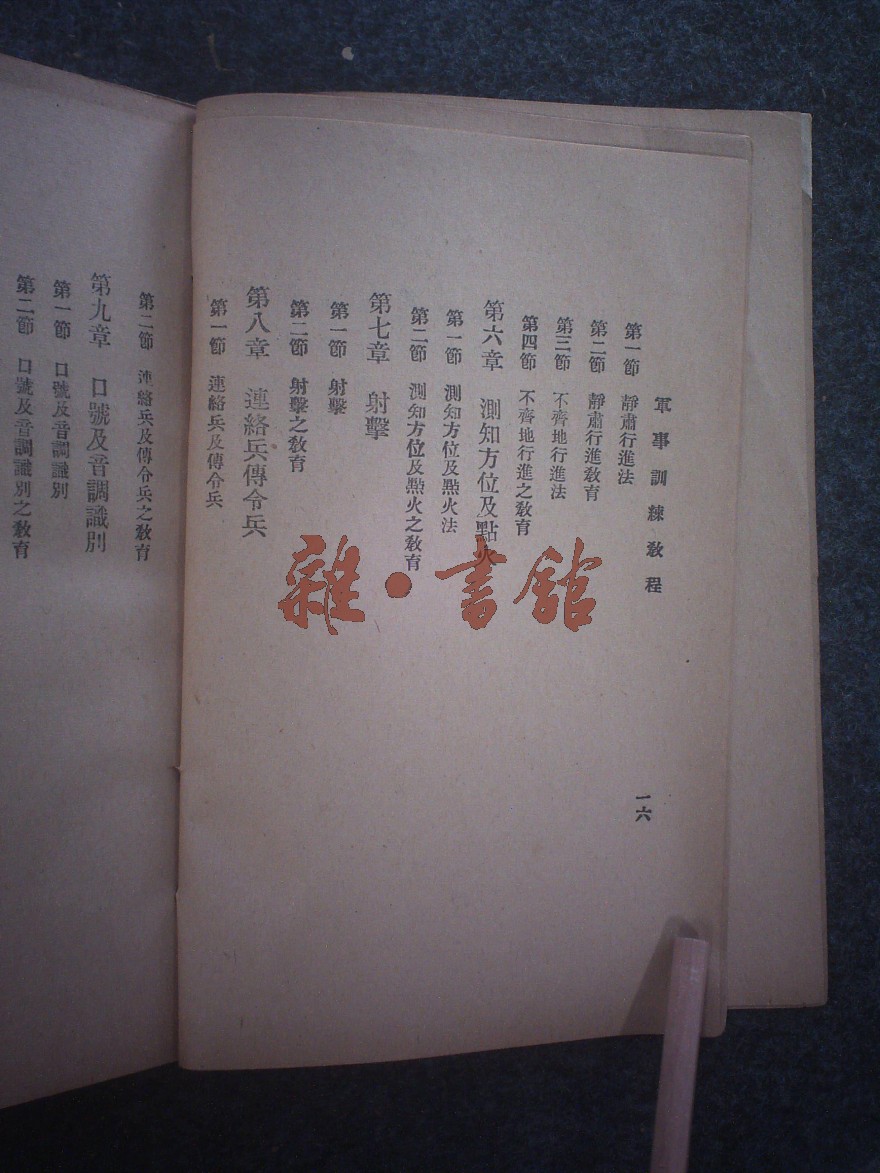 軍事訓練教程
一六
第一節 靜肅行進法
第二節 靜肅行進教育
第三節 不齊地行進法
第四節 不齊地行進之教育
第六章 測知方位及點火
第一節 測知方位及點火法
第二節 測知方位及點火之教育
第七章 射擊
第一節 射擊
第二節 射擊之教育
第八章 連絡兵傳令兵
第一節 連絡兵及傳令兵
第二節 連絡兵及傳令兵之教育
第九章 口號及音調識別
第一節 口號及音調識別
第二節 口號及音調識別之教育
雜·書館